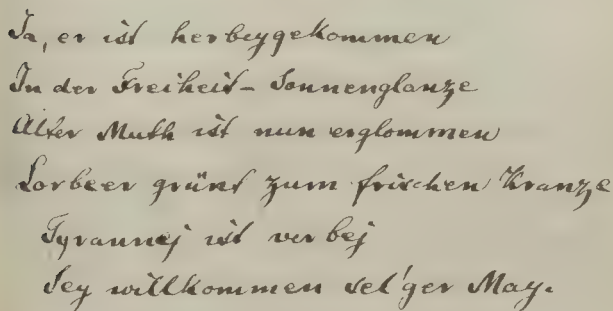 Ja, er ist herbeygekommen
In der Freiheit-Sonnenglanze
Alter Muth ist nun erglommen
Lorbeer grünt zum frischen Kranze
Tyranney ist verbej
Sey willkommen sel'ger May.